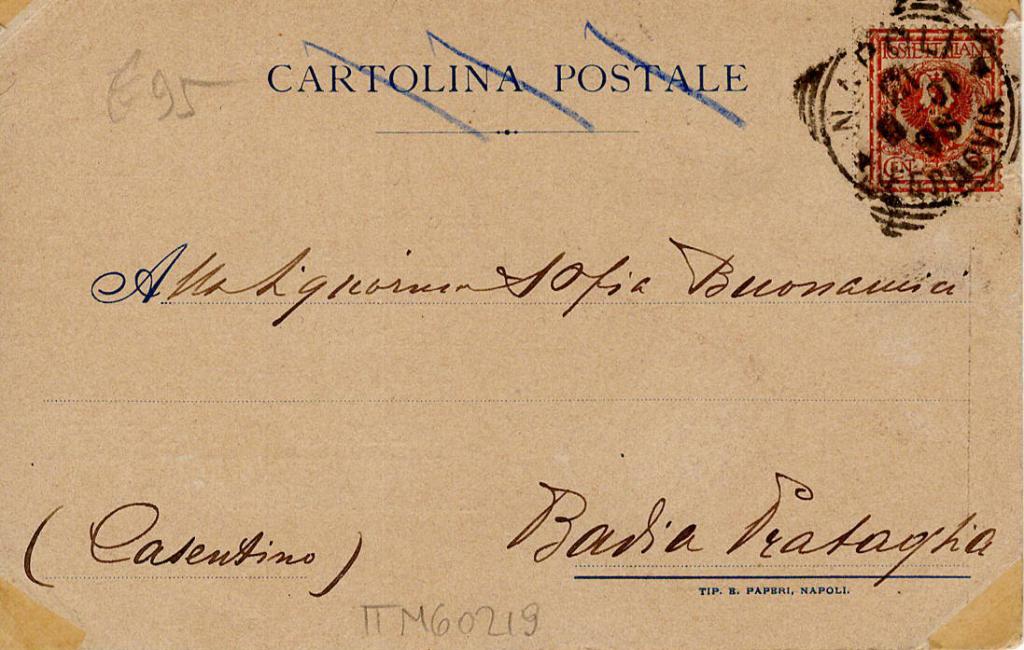 £95
CARTOLINA POSTALE
POSTE ITALIANE
CEN.
NAPOLI
FERROVIA
Alla Signorina Sofia Buonamici
(Casentino)
Badia Prataglia
TIP. E. PAPERI, NAPOLI.
ITM60219